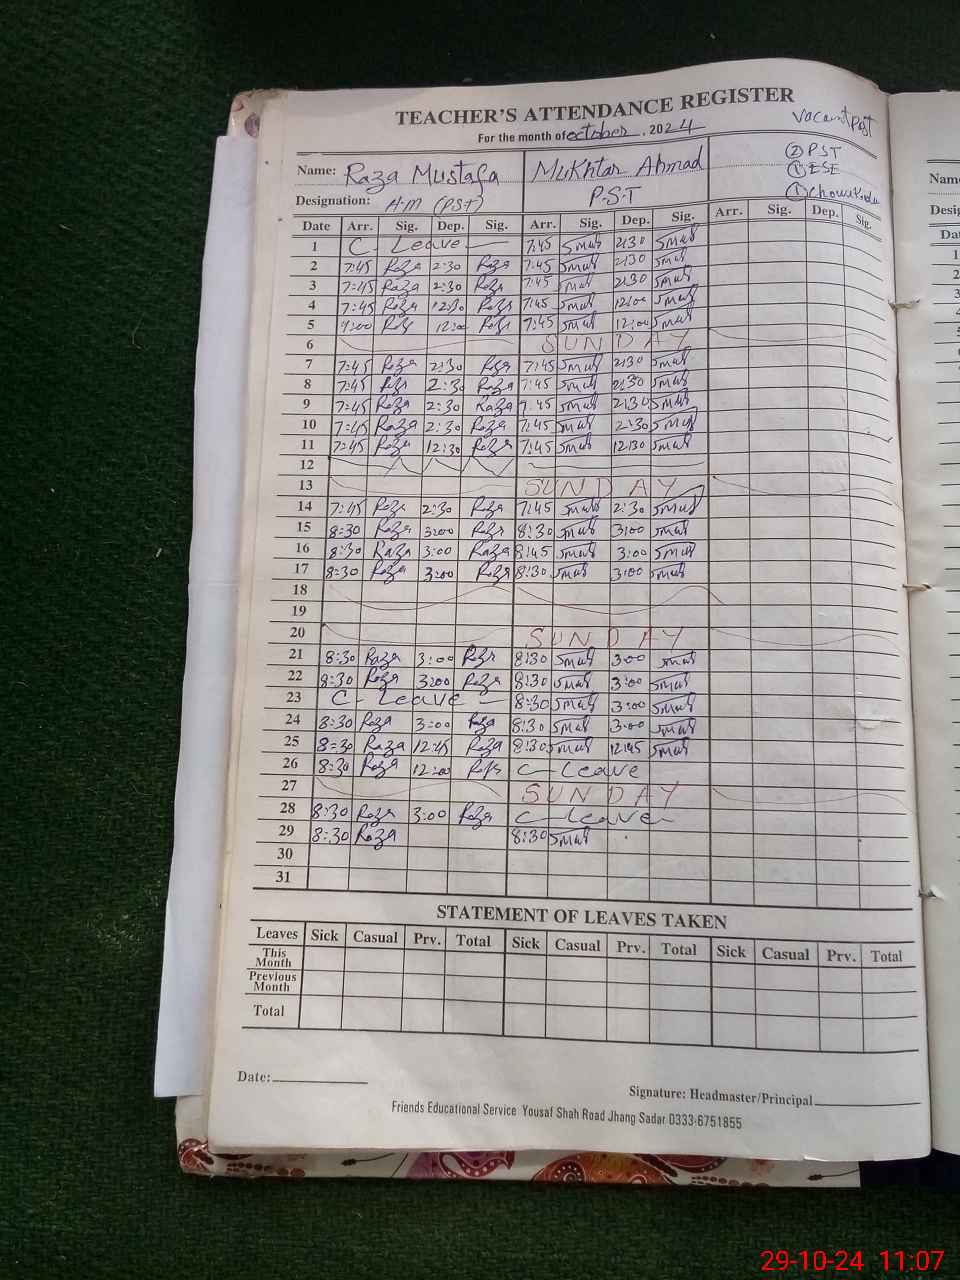 TEACHER'S ATTENDANCE REGISTER
For the month of october, 2024
Vacant Post
Name: Raza Mustafa Mukhtar Ahmad ② PST
① ESE
Designation: H-M (PST) P.S.T ① Chowkidar
Date Arr. Sig. Dep. Sig. Arr. Sig. Dep. Sig. Arr. Sig. Dep. Sig.
1 C- Leave 7:45 2:30
2 7:45 Raza 2:30 Raza 7:45 2:30
3 7:45 Raza 2:30 Raza 7:45 2:30
4 7:45 Raza 12:30 Raza 7:45 12:00
5 Raza 12:00 Raza 7:45 12:00
6 SUNDAY
7 7:45 Raza 2:30 Raza 7:45 2:30
8 7:45 Raza 2:30 Raza 7:45 2:30
9 7:45 Raza 2:30 Raza 7:45 2:30
10 7:45 Raza 2:30 Raza 7:45 2:30
11 7:45 Raza 12:30 Raza 7:45 12:30
12
13 SUNDAY
14 7:45 Raza 2:30 Raza 7:45 2:30
15 8:30 Raza 3:00 Raza 8:30 3:00
16 8:30 Raza 3:00 Raza 8:45 3:00
17 8:30 Raza 3:00 Raza 8:30 3:00
18
19
20 SUNDAY
21 8:30 Raza 3:00 Raza 8:30 3:00
22 8:30 Raza 3:00 Raza 8:30 3:00
23 C- Leave 8:30 3:00
24 8:30 Raza 3:00 Raza 8:30 3:00
25 8:30 Raza 12:45 Raza 8:30 12:45
26 8:30 Raza 12:00 Raza C- Leave
27 SUNDAY
28 8:30 Raza 3:00 Raza C- Leave
29 8:30 Raza 8:30
30
31
STATEMENT OF LEAVES TAKEN
Leaves Sick Casual Prv. Total Sick Casual Prv. Total Sick Casual Prv. Total
This Month
Previous Month
Total
Date:
Signature: Headmaster/Principal
Friends Educational Service Yousaf Shah Road Jhang Sadar 0333-6751855
Name
Desig
Da
1
2
3
4
5
6
7
8
9
10
11
12
13
14
15
16
17
18
19
20
21
22
23
24
25
26
27
28
29
30
31
29-10-24 11:07